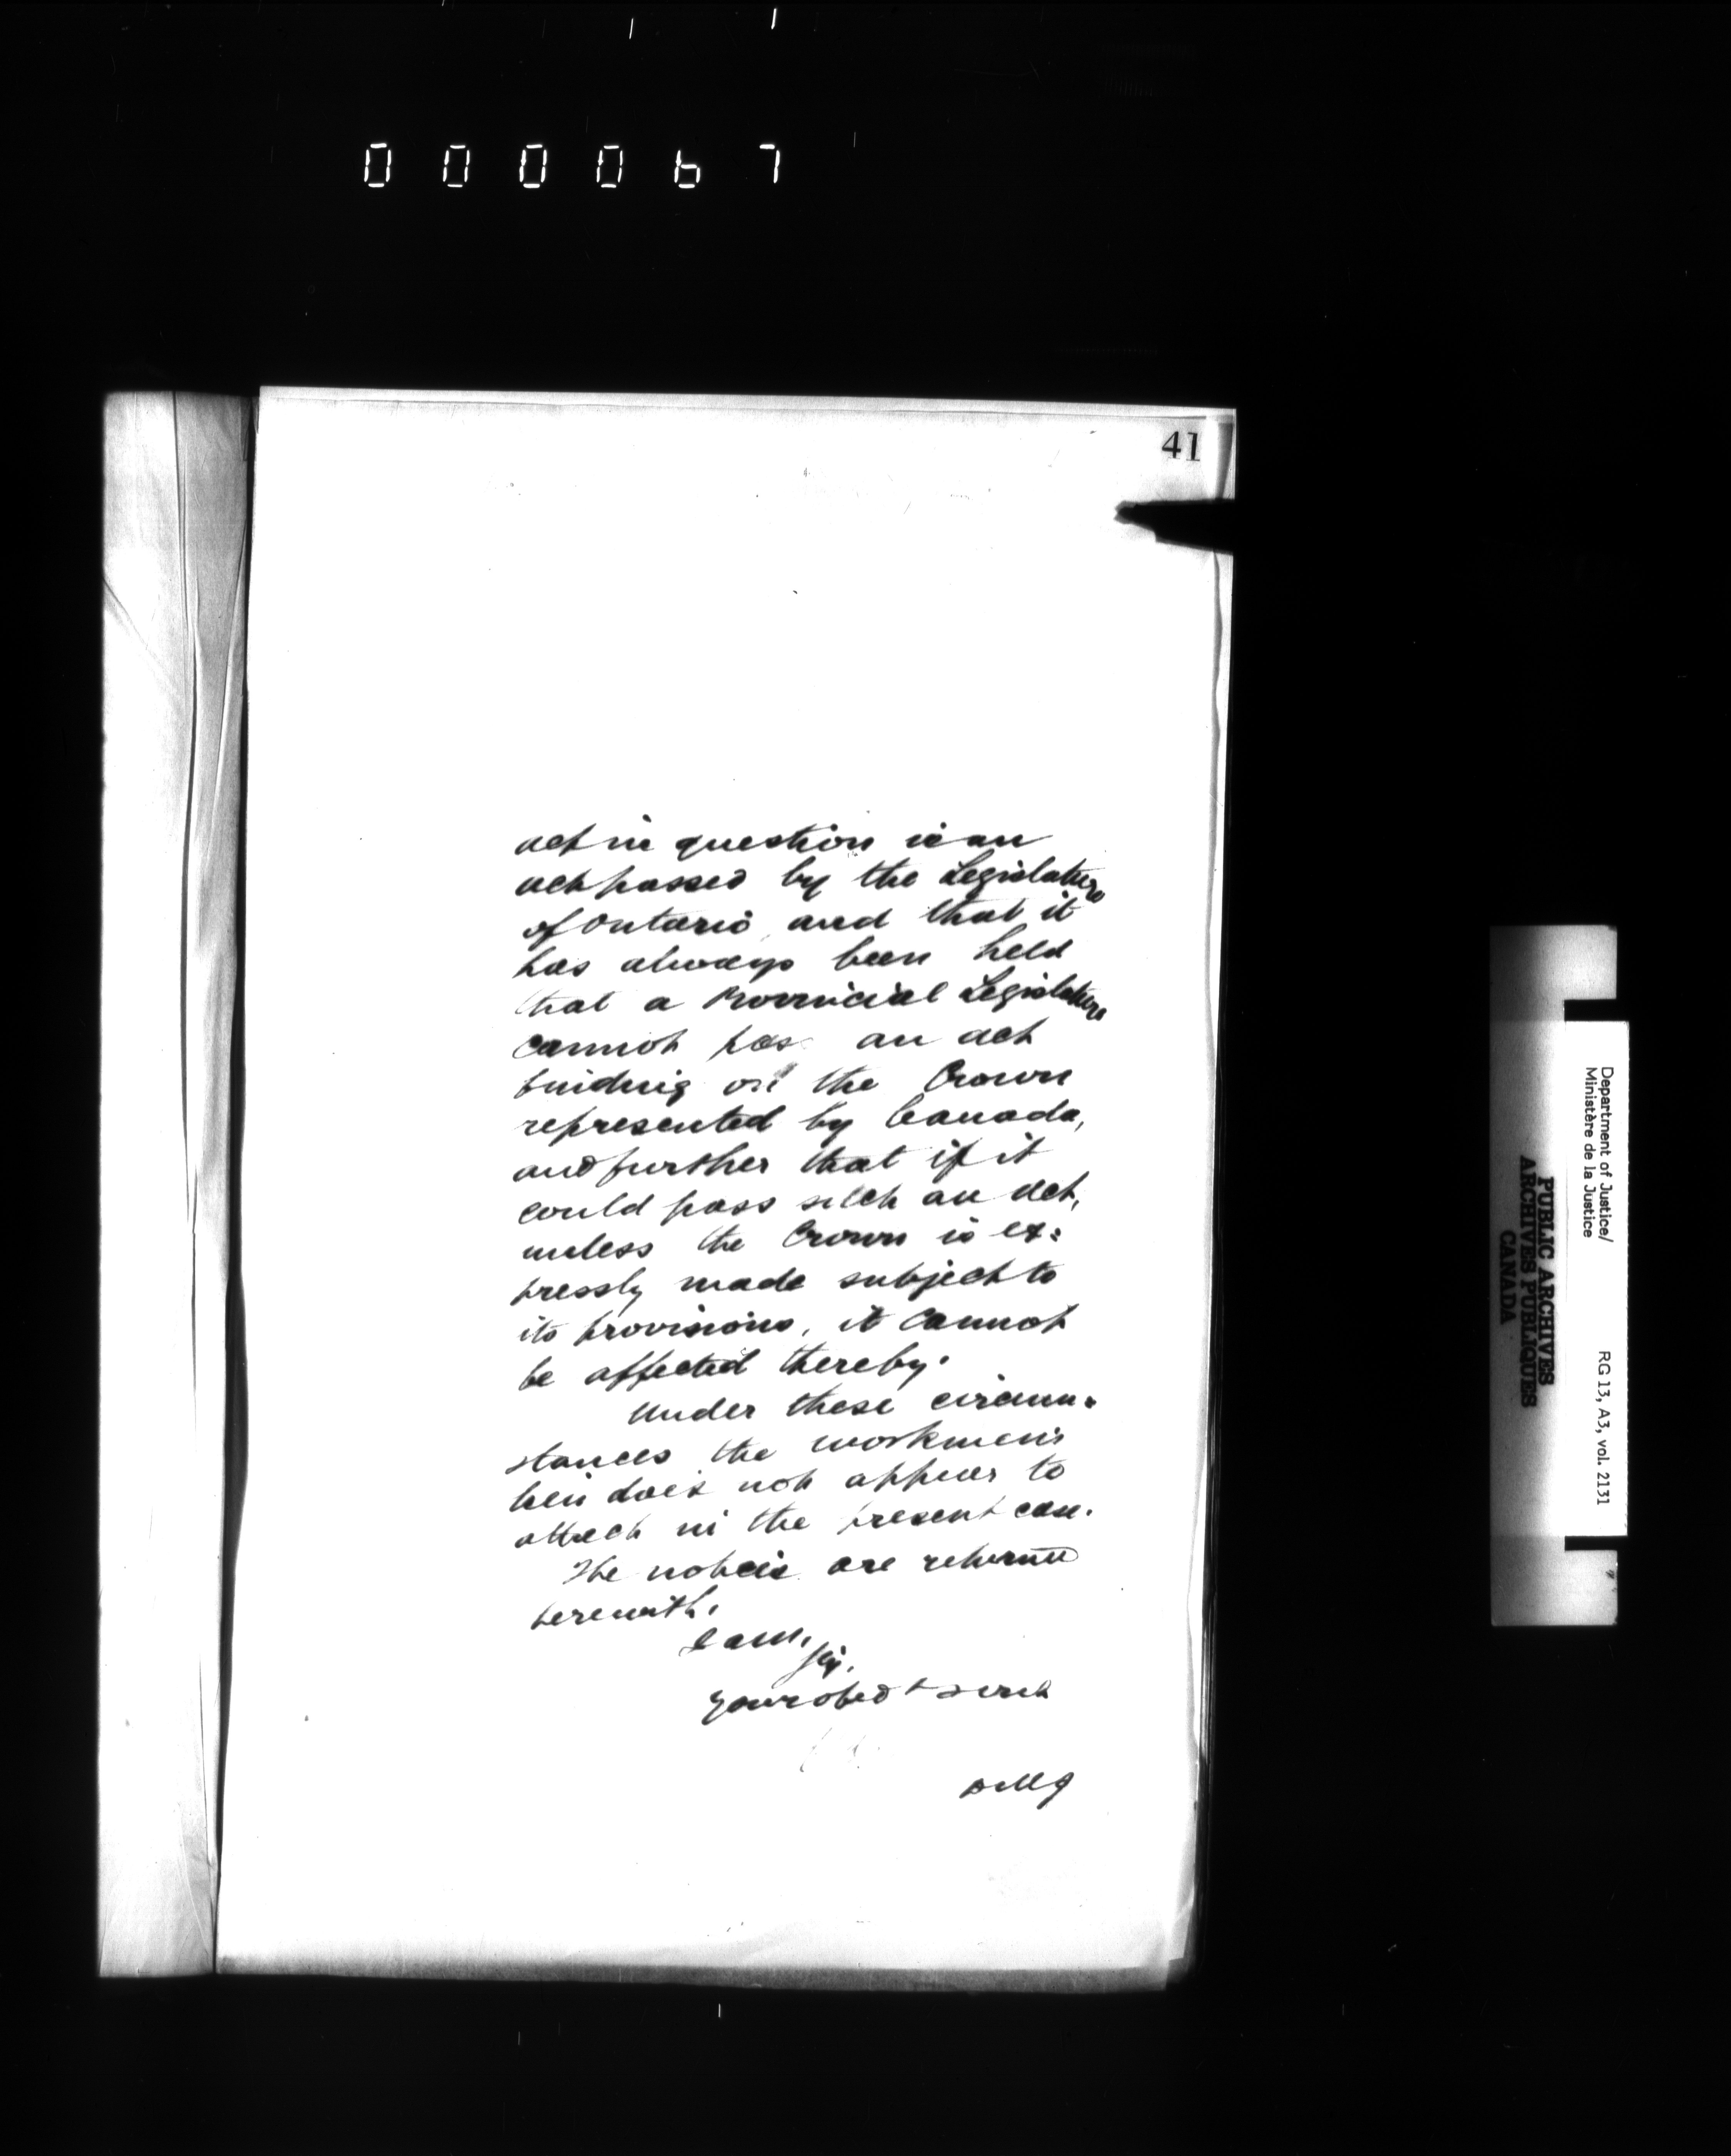 000067
41
act in question is an
act passed by the Legislature
of Ontario and that it
has always been held
that a Provincial Legislature
cannot pass an act
binding on the Crown
represented by Canada,
and further that if it
could pass such an act,
unless the Crown is ex:
pressly made subject to
its provisions, it cannot
be affected thereby.
Under these circum=
stances the workmen's
lien does not appear to
attach in the present case.
The notices are returned
herewith.
I am,
Sir,
Your obed t servt
DMJ
Department of Justice/
Ministère de la Justice
RG 13, A3, vol. 2131
PUBLIC ARCHIVES
ARCHIVES PUBLIQUES
CANADA